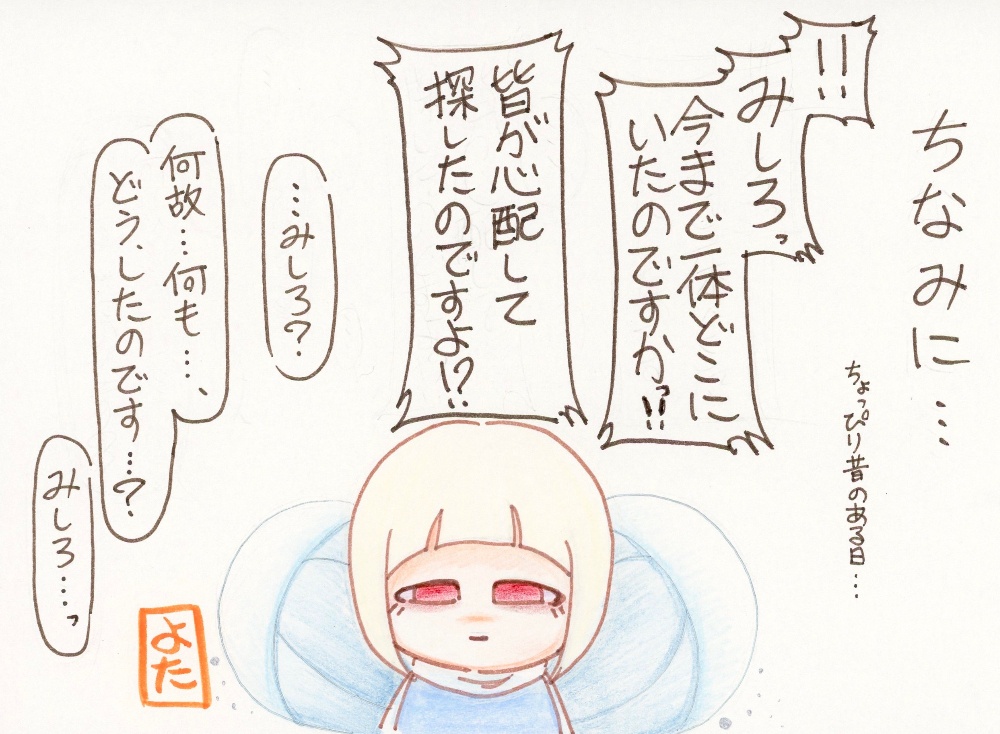 ちなみに…
ちょっぴり昔のある日…
!!
みしろっ
今まで一体どこに
いたのですかっ!!
皆が心配して
探したのですよ!?
…みしろ?
何故…何も…、
どう、したのです…?
みしろ…っ
よた